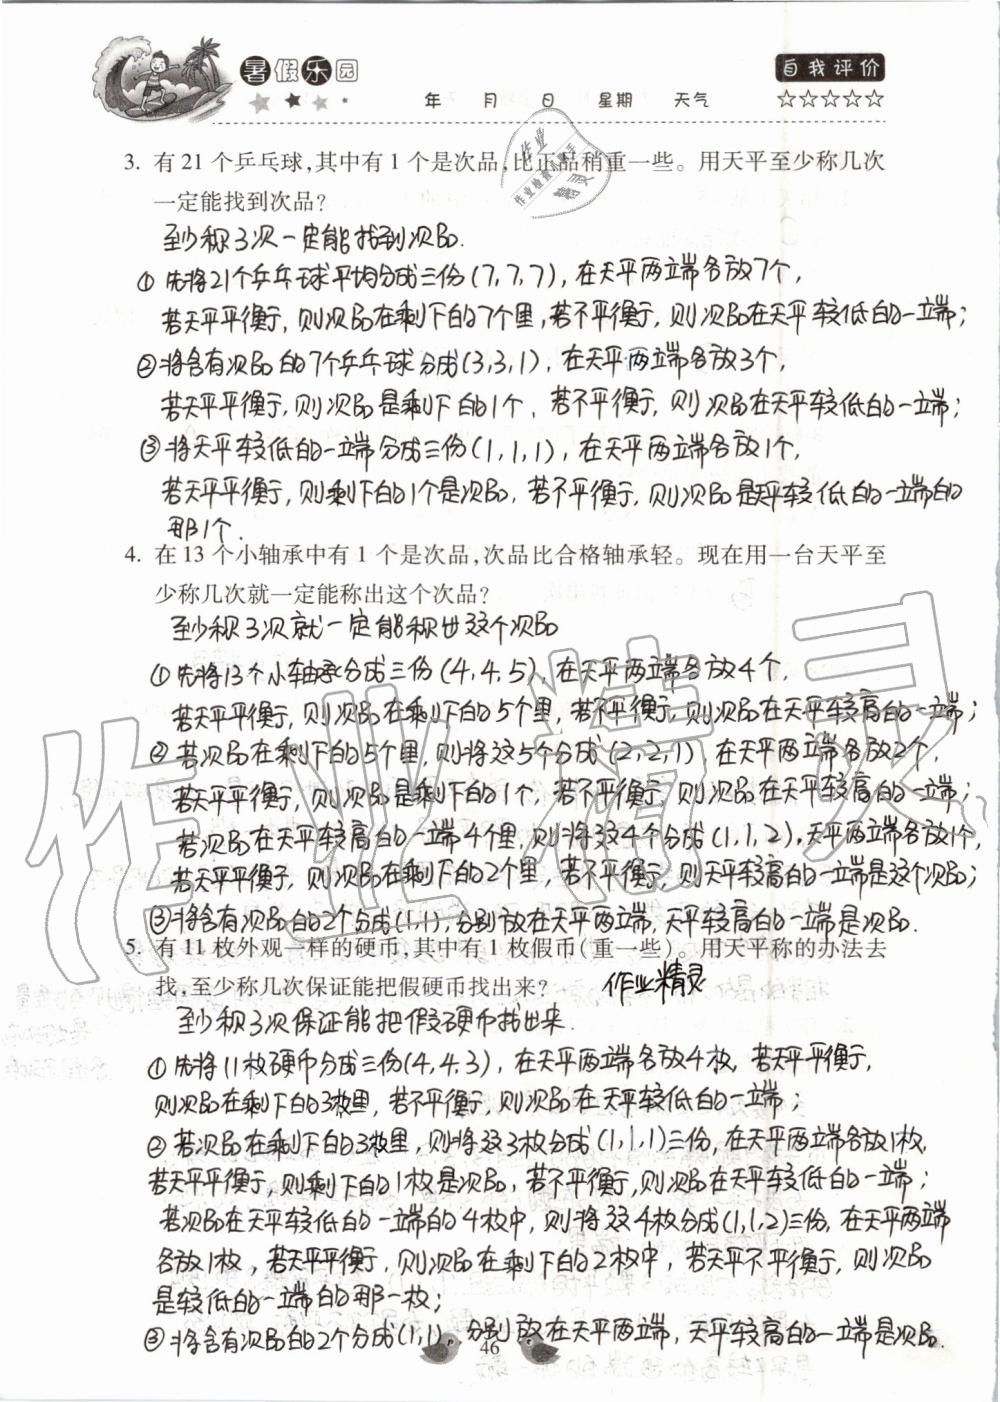 暑假乐园
自我评价
年 月 日 星期 天气 ☆☆☆☆☆
3. 有21个乒乓球,其中有1个是次品,比正品稍重一些。用天平至少称几次
一定能找到次品?
至少称3次一定能找到次品.
①先将21个乒乓球平均分成三份(7,7,7),在天平两端各放7个,
若天平平衡,则次品在剩下的7个里,若不平衡,则次品在天平较低的一端;
②将含有次品的7个乒乓球分成(3,3,1),在天平两端各放3个,
若天平平衡,则次品是剩下的1个,若不平衡,则次品在天平较低的一端;
③将天平较低的一端分成三份(1,1,1),在天平两端各放1个,
若天平平衡,则剩下的1个是次品,若不平衡,则次品是天平较低的一端的
那1个.
4. 在13个小轴承中有1个是次品,次品比合格轴承轻。现在用一台天平至
少称几次就一定能称出这个次品?
至少称3次就一定能称出这个次品
①先将13个小轴承分成三份(4,4,5),在天平两端各放4个,
若天平平衡,则次品在剩下的5个里,若不平衡,则次品在天平较高的一端;
②若次品在剩下的5个里,则将这5个分成(2,2,1),在天平两端各放2个,
若天平平衡,则次品是剩下的1个,若不平衡,则次品在天平较高的一端;
若次品在天平较高的一端4个里,则将这4个分成(1,1,2),天平两端各放1个,
若天平平衡,则次品在剩下的2个里,若不平衡,则天平较高的一端是这个次品;
③将含有次品的2个分成(1,1),分别放在天平两端,天平较高的一端是次品.
5. 有11枚外观一样的硬币,其中有1枚假币(重一些)。用天平称的办法去
找,至少称几次保证能把假硬币找出来? 作业精灵
至少称3次保证能把假硬币找出来.
①先将11枚硬币分成三份(4,4,3),在天平两端各放4枚,若天平平衡,
则次品在剩下的3枚里,若不平衡,则次品在天平较低的一端;
②若次品在剩下的3枚里,则将这3枚分成(1,1,1)三份,在天平两端各放1枚,
若天平平衡,则剩下的1枚是次品,若不平衡,则次品在天平较低的一端;
若次品在天平较低的一端的4枚中,则将这4枚分成(1,1,2)三份,在天平两端
各放1枚,若天平平衡,则次品在剩下的2枚中,若天平不平衡,则次品
是较低的一端的那一枚;
③将含有次品的2个分成(1,1),分别放在天平两端,天平较高的一端是次品.
46
作业精灵